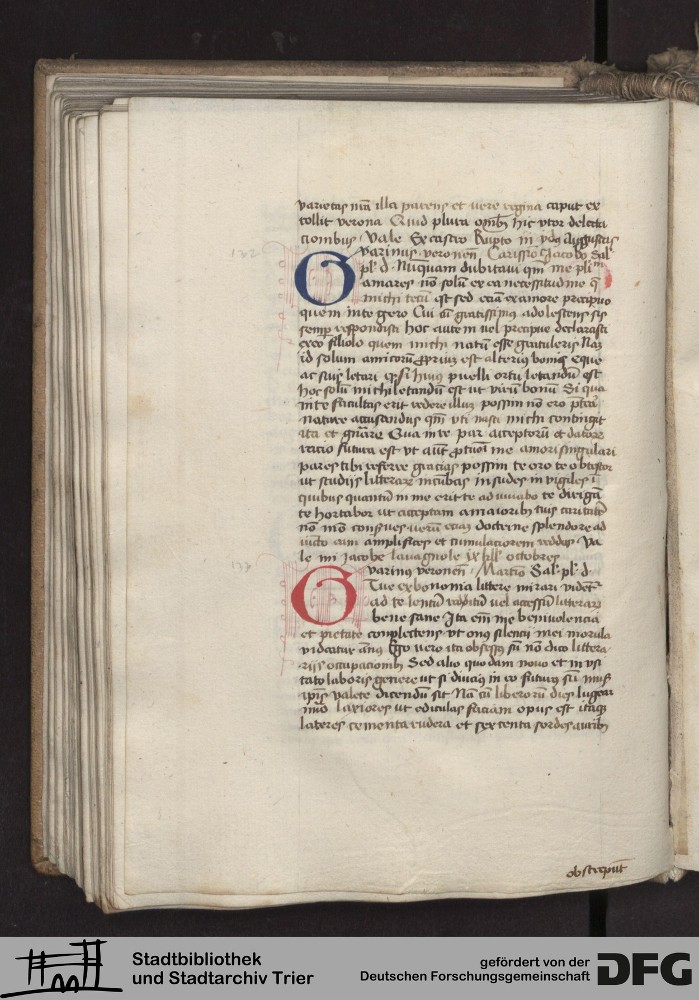 varietas nra illa parens et vere regina caput ex
tollit verona Quid plura omibus hic vtor delecta
cionibus Vale Ex castro Rupto in ydus Augustas
132
Gvarinus veronen Carissio Jacobo Sal
pl d Nuquam dubitaui qin me pli
amares no solu ex ea necessitudine q
michi tecu est sed eciam ex amore precipuo
quem integero Cui aut gratissimus adolescens sis
semper respondisti hoc autem uel precipue declarasti
ex eo filiolo quem michi natu esse gratuleris Na
id solum amicoru proprius est alterius bonis eque
ac suis letari si huius puelli ortu letandu est
hoc solu michi letandu est ut viru bonu Si qua
in te facultas erit reddere illus possim no ero
nature accusandus vti nasci michi contingit
ita et gnare Qua in re par acceptoru et datoru
racio futura est vt aut me amori singulari
pares tibi referre gracias possim te oro te obtestor
ut studijs litterarum incubas insudes in vigiles i
quibus quantu in me erit te adiuuabo te dirigam
te hortabor ut acceptam a maioribus tuis caritate
no mo conserues ueru eciam doctrine splendore ad
iucto eam amplifices et cumulaciorem reddas Va
le mi Jacobe lauagnole octobres
133
Gvarinus veronen Martio Sal pl d
Tue ex bononia littere mirari videtur
ad te lentu redditu uel accessu litterarum
bene sane Ita em me beniuolencia
et pietate complecteris vt onus silencii mei morula
videatur annus Ego vero ita obsessus su no dico littera
rijs occupacionibus Sed alio quodam nouo et inusi
tato laboris genere ut si diucius in eo futurus sim musis
ipsis valete dicendum sit Na cu liberoru dies
laxiores ut ediculas faciam opus est itaque
lateres cementa rudera et sexcenta sordes auribus
obstrepunt
Stadtbibliothek
und Stadtarchiv Trier
gefördert von der
Deutschen Forschungsgemeinschaft
DFG